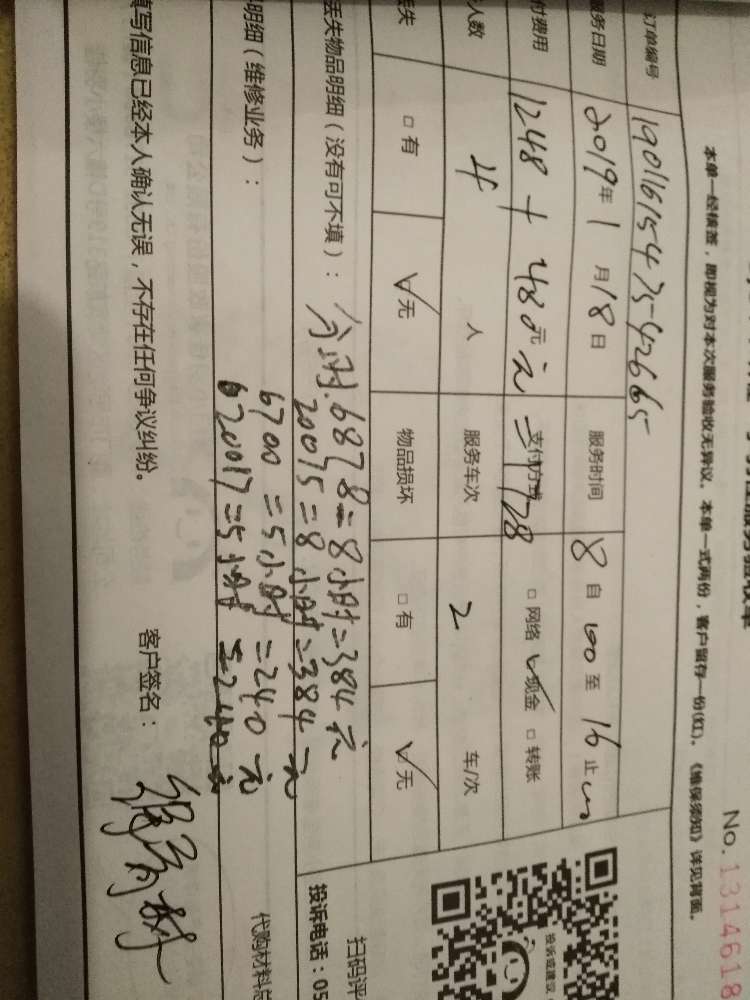 服务验收单
No. 1314618
本单一经核签，即视为对本次服务验收无异议。本单一式两份，客户留存一份(红)。《维保须知》详见背面。
订单编号 190161547542665
服务日期 2019年 1 月 18 日 服务时间 8 自 至 16 止
付费用 1248 + 480元 = 1728 支付方式 □ 网络 ☑ 现金 □ 转账
人数 4 人 服务车次 2 车/次
丢失 □ 有 ☑ 无 物品损坏 □ 有 ☑ 无
丢失物品明细（没有可不填）： 6878=8小时=384元
20075=8小时=384元
明细（维修业务）： 6700=5小时=240元
620017=5小时=240元
代购材料总
填写信息已经本人确认无误，不存在任何争议纠纷。 客户签名：
扫码评
投诉电话：05
投诉或建议